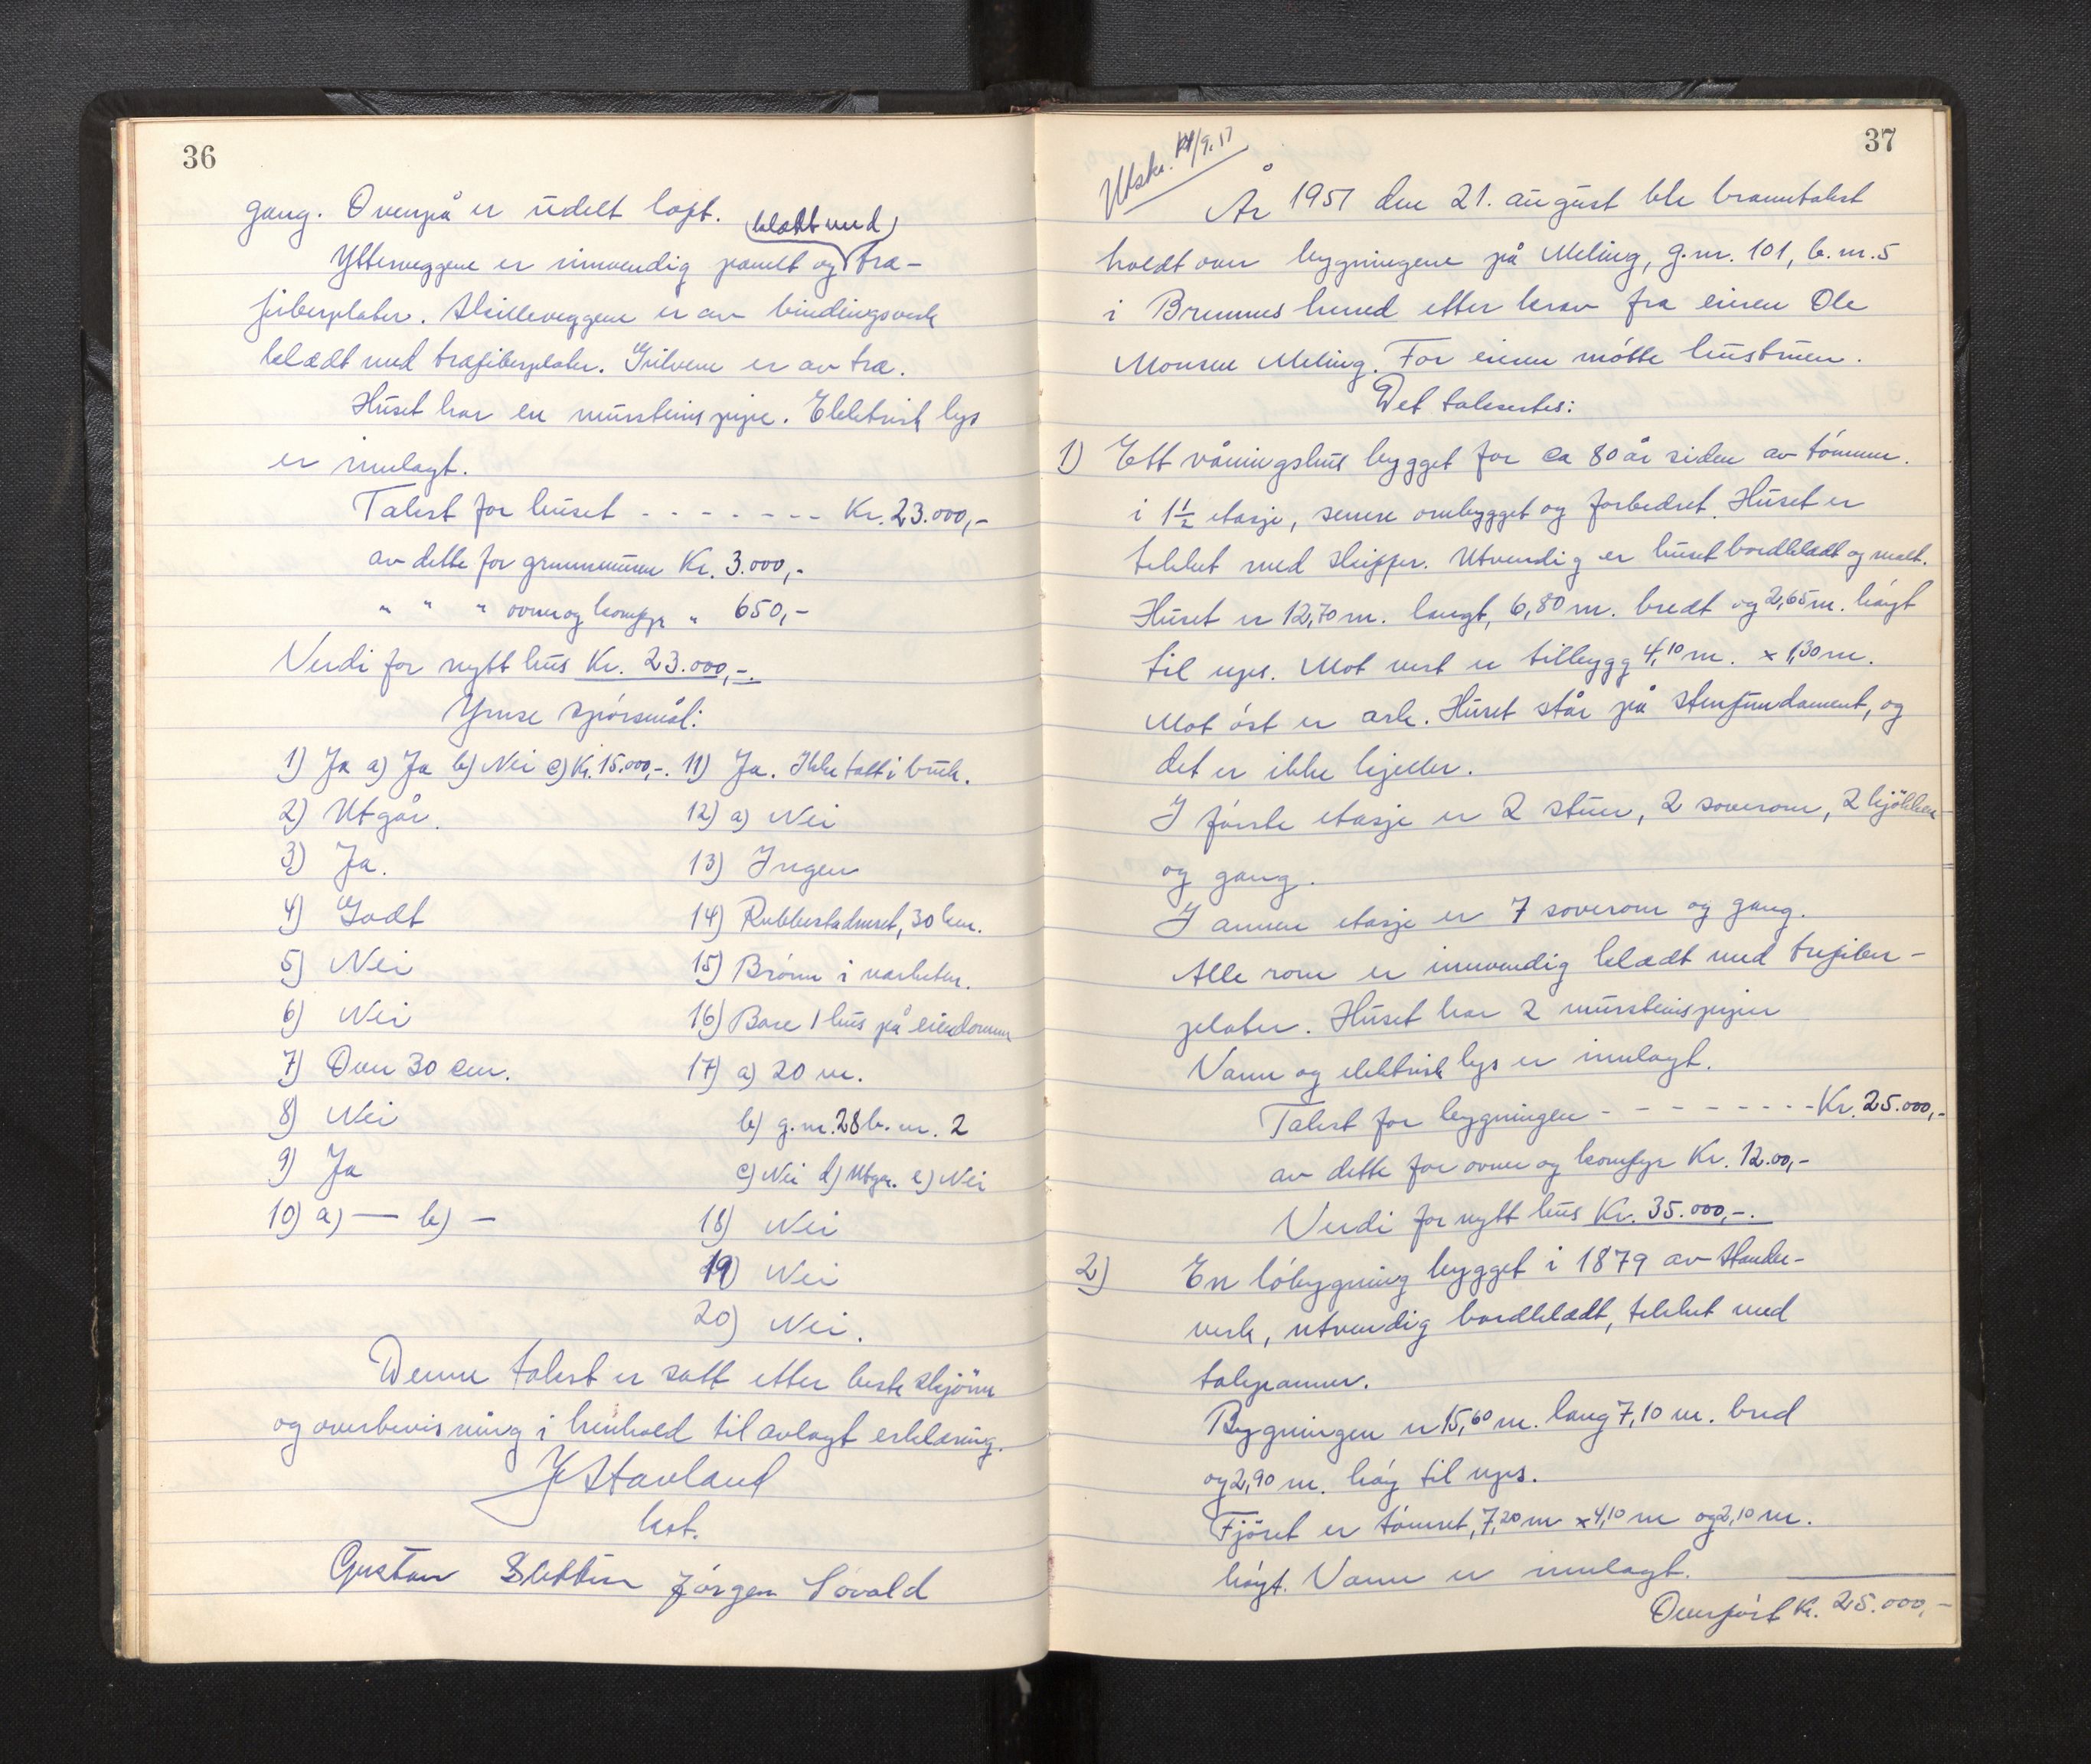 36
gang. Ovenpå er udelt loft.
(klædt med)
Ytterveggene er innvendig panelt og træ-
fiberplater. Skilleveggene er av bindingsverk
klædt med træfiberplater. Gulvene er av træ.
Huset har en mursteins pipe. Elektrisk lys
er innlagt.
Takst for huset - - - - - - - Kr. 23.000,-
av dette for grunnmuren Kr. 3.000,-
" " " ovner og komfyr " 650,-
Verdi for nytt hus Kr. 23.000,-.
Ymse spørsmål:
1) Ja a) Ja b) Nei c) Kr. 15.000,-. 11) Ja. Ikke tatt i bruk.
2) Utgår. 12) a) Nei
3) Ja. 13) Ingen
4) Godt 14) Rubbestadneset, 30 km.
5) Nei 15) Brønn i nærheten.
6) Nei 16) Bare 1 hus på eiendommen
7) Over 30 cm. 17) a) 20 m.
8) Nei b) g.nr. 28 b.nr. 2
9) Ja c) Nei d) Utgår. e) Nei
10) a) — b) – 18) Nei
19) Nei
20) Nei.
Denne takst er satt etter beste skjönn
og overbevisning i henhold til avlagt erklæring.
J Stavland
lest.
Gustav Sletten Jørgen Søvold
37
Utskr. /9.57
År 1957 den 21. august ble branntakst
holdt over bygningene på Meling, g.nr. 101, b.nr. 5
i Bremnes herred etter krav fra eieren Ole
Monsen Meling. For eieren møtte hustruen.
Det takseertes:
1) Ett våningshus bygget for ca 80 år siden av tømmer.
i 1½ etasje, senere ombygget og forbedret. Huset er
tekket med skifer. Utvendig er huset bordklædt og malt.
Huset er 12,70 m. langt, 6,80 m. bredt og 2,65 m. høyt
til ups. Mot vest er tilbygg 4,10 m. x 1,30 m.
Mot øst er ark. Huset står på stenfundament, og
det er ikke kjeller.
I første etasje er 2 stuer, 2 soverom, 2 kjökken
og gang.
I annen etasje er 7 soverom og gang.
Alle rom er innvendig klædt med trefiber-
plater. Huset har 2 mursteinspiper
Vann og elektrisk lys er innlagt.
Takst for bygningen - - - - - - - - Kr. 25.000,-
av dette for ovner og komfyr Kr. 12.00,-
Verdi for nytt hus Kr. 35.000,-.
2) En løbygning bygget i 1879 av stander-
verk, utvendig bordklædt, tekket med
takpanner.
Bygningen er 15,60 m. lang 7,10 m. bred
og 2,90 m. høy til ups.
Fjöset er tømret, 7,20 m x 4,10 m og 2,10 m.
høyt. Vann er innlagt.
Overført Kr. 25.000,-